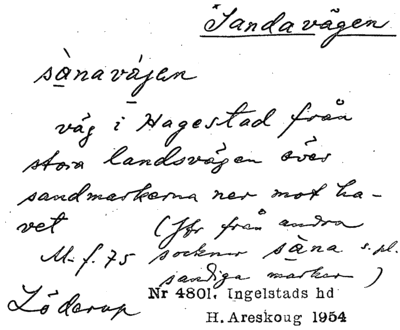 *Sandavägen
sànavä́jen
väg i Hagestad från
stora landsvägen över
sandmarkerna ner mot ha-
vet (Jfr från andra
M. f. 75 socknar sàna s. pl.
sandiga marker)
Löderup
Nr 4801. Ingelstads hd
H. Areskoug 1954